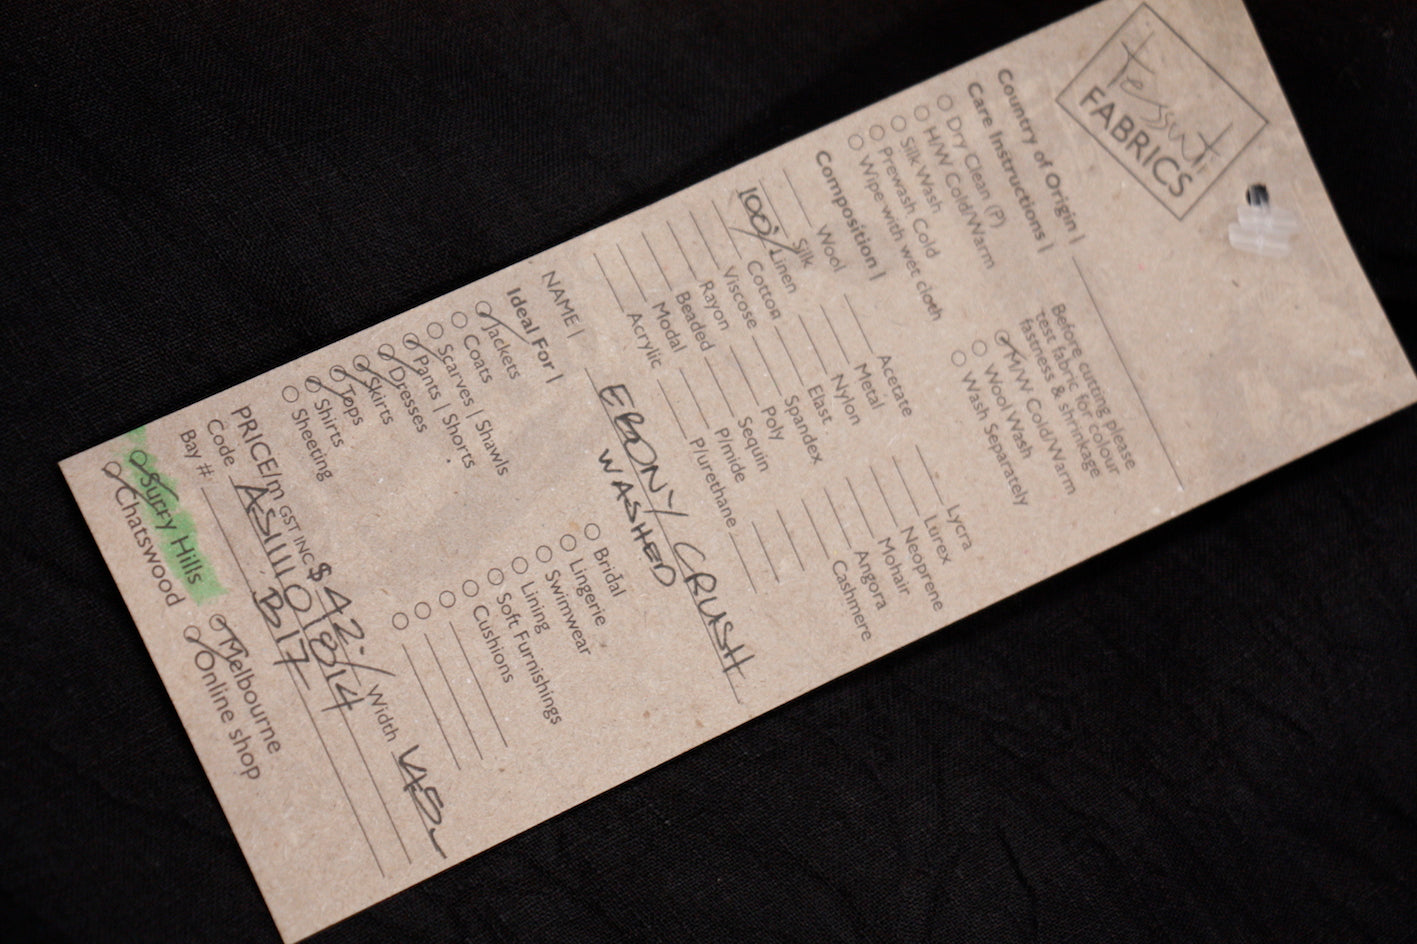 tessuti
FABRICS
Country of Origin |
Care Instructions |
Dry Clean (P)
H/W Cold/Warm
Silk Wash
Prewash Cold
Wipe with wet cloth
Before cutting please
test fabric for colour
fastness & shrinkage
M/W Cold/Warm
Wool Wash
Wash Separately
Composition |
Wool Acetate Lycra
Silk Metal Lurex
100% Linen Nylon Neoprene
Cotton Elast Mohair
Viscose Spandex Angora
Rayon Poly Cashmere
Beaded Sequin
Modal P/mide
Acrylic P/urethane
NAME | EBONY CRUSH
WASHED
Ideal For |
Jackets
Coats
Scarves | Shawls
Pants | Shorts
Dresses
Skirts
Tops
Shirts
Sheeting
Bridal
Lingerie
Swimwear
Lining
Soft Furnishings
Cushions
PRICE/m GST INC $42.- Width 145
Code
Bay # B17
Surry Hills Melbourne
Chatswood Online shop